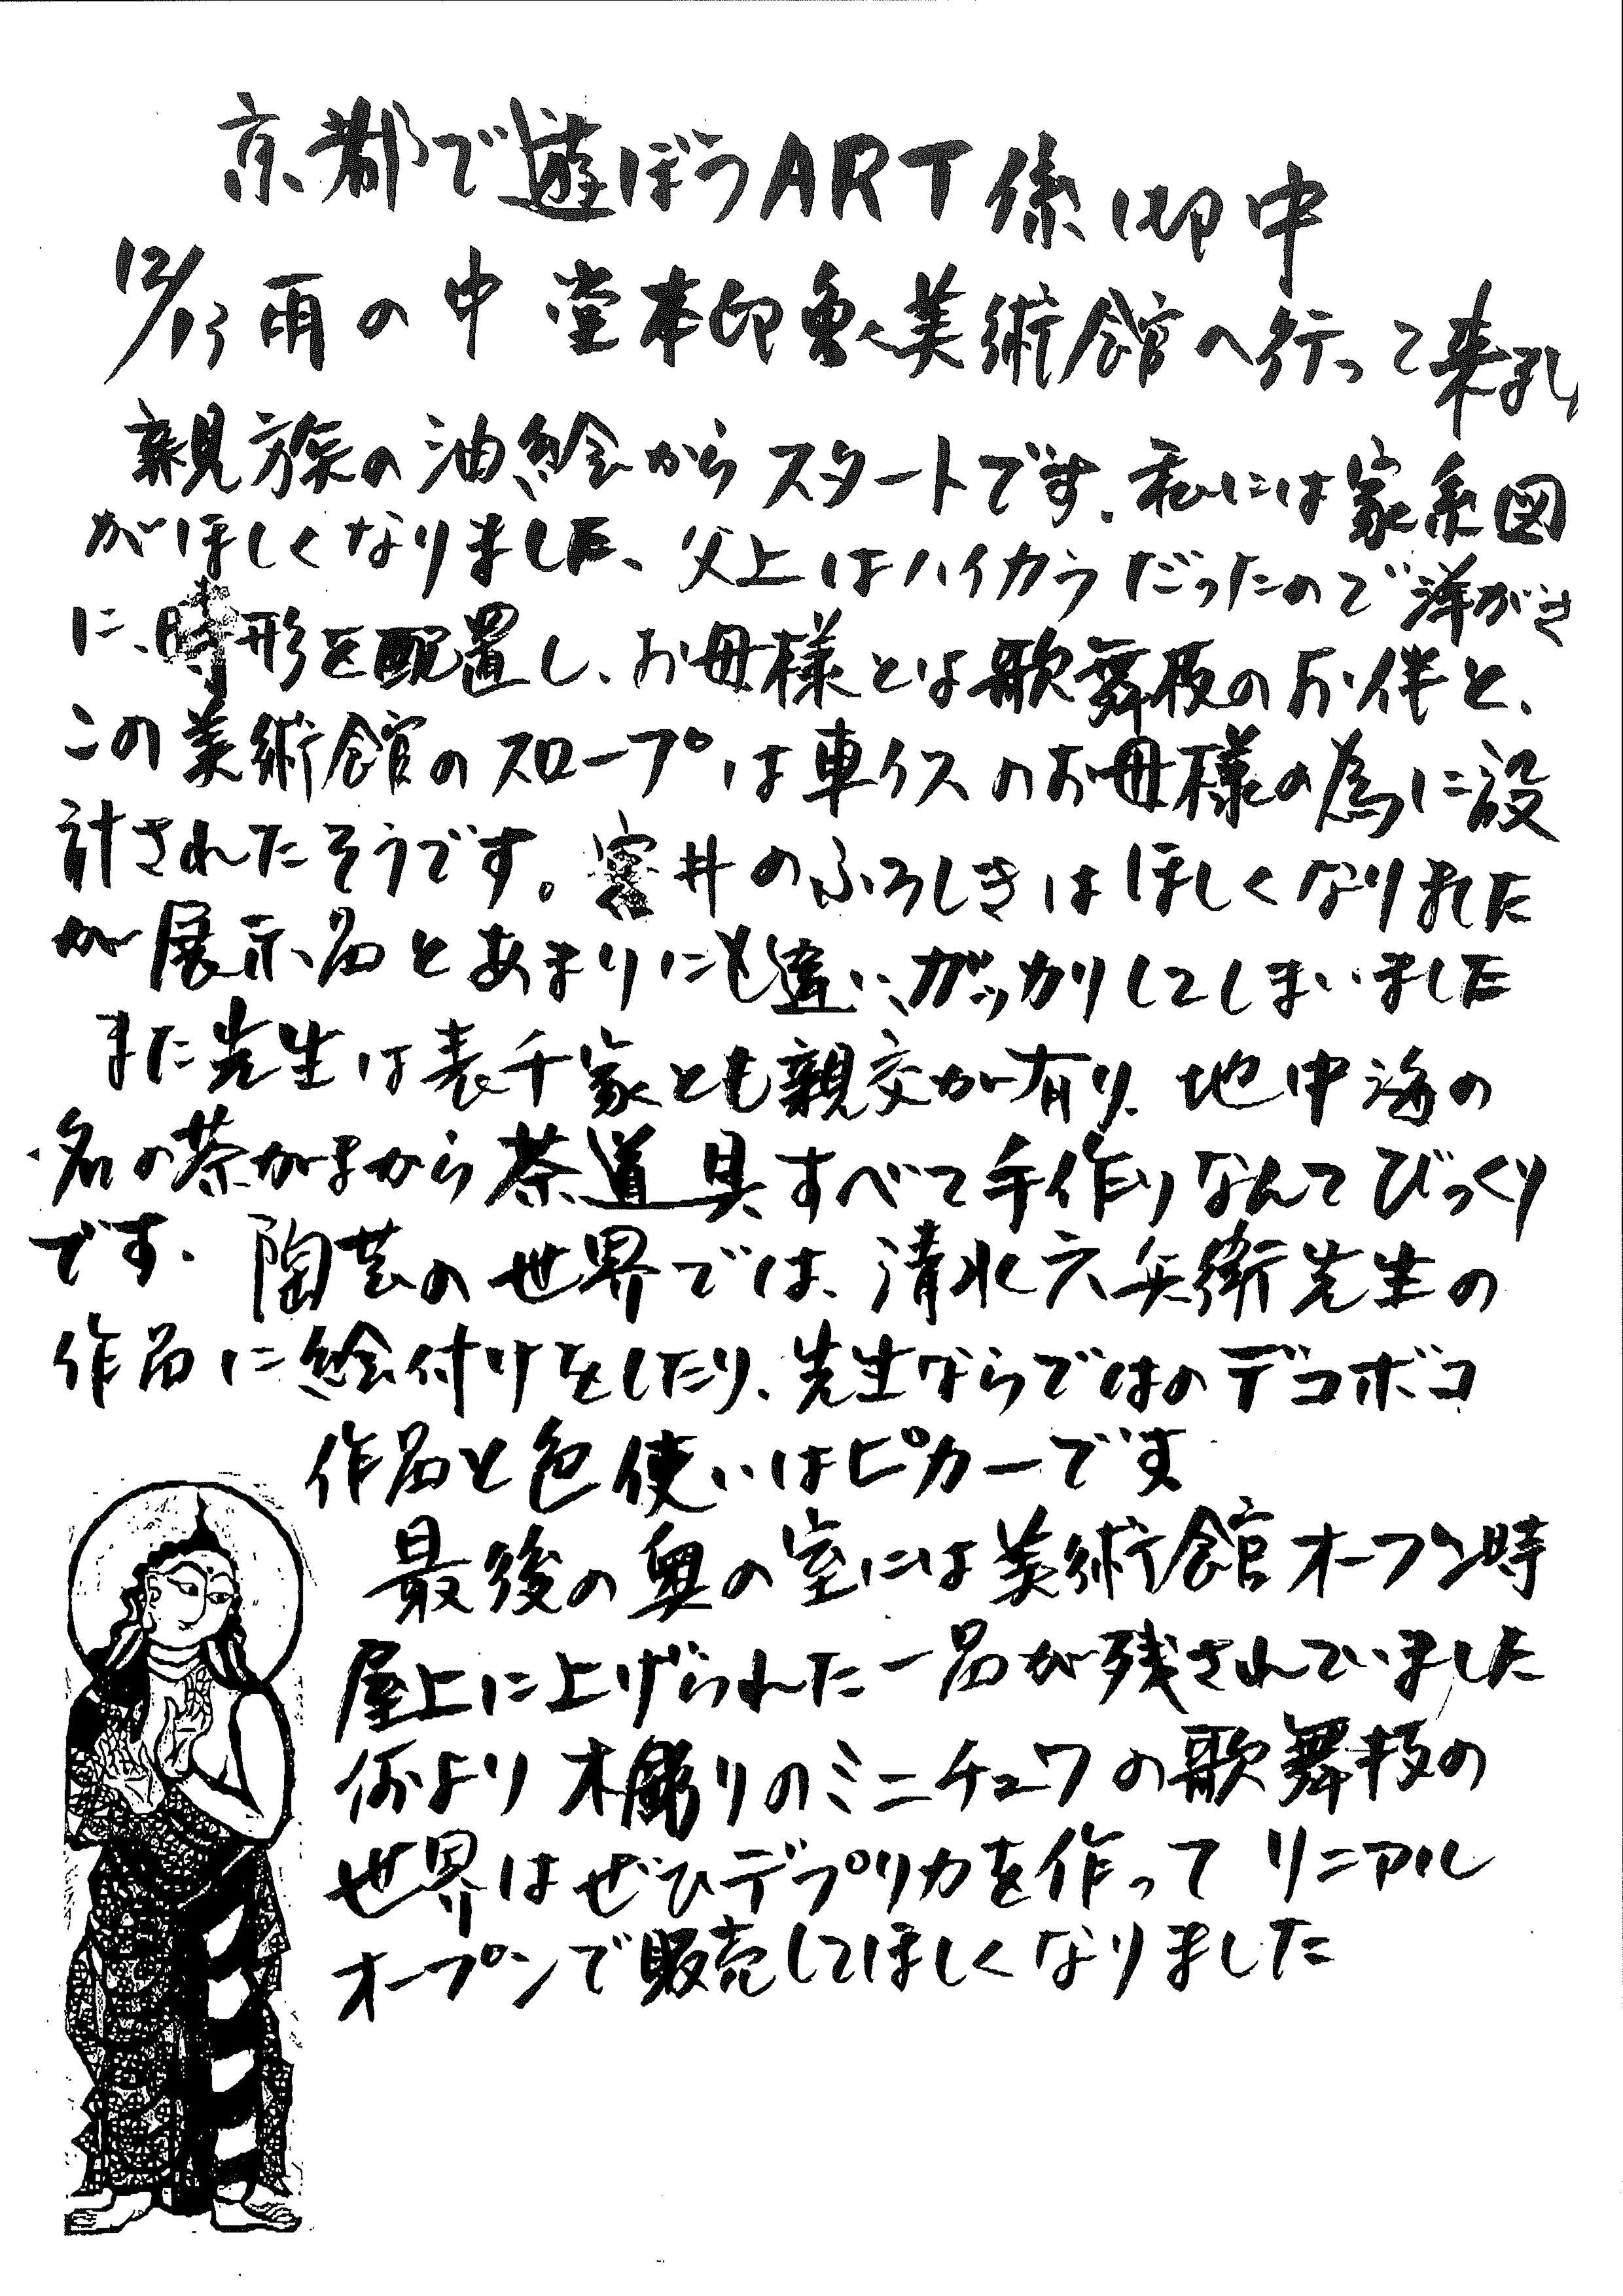 京都で遊ぼうART係御中
12/13雨の中堂本印象美術館へ行って来ました
親族の油絵からスタートです。私には家系図
がほしくなりました、父上はハイカラだったので洋がさ
に、時形を配置し、お母様とは歌舞伎のお伴と、
この美術館のスロープは車イスのお母様の為に設
計されたそうです。窓井のふろしきはほしくなりました
が展示品とあまりにも違い、ガッカリしてしまいました
また先生は表千家とも親交が有り、地中海の
名の茶がまから茶道具すべて手作りなんてびっくり
です。陶芸の世界では、清水六兵衛先生の
作品に絵付けをしたり、先生ならではのデコボコ
作品と色使いはピカ一です
最後の奥の室には美術館オープン時
屋上に上げられた一品が残されていました
何より木彫りのミニチュワの歌舞伎の
世界はぜひデプリカを作ってリニアル
オープンで販売してほしくなりました